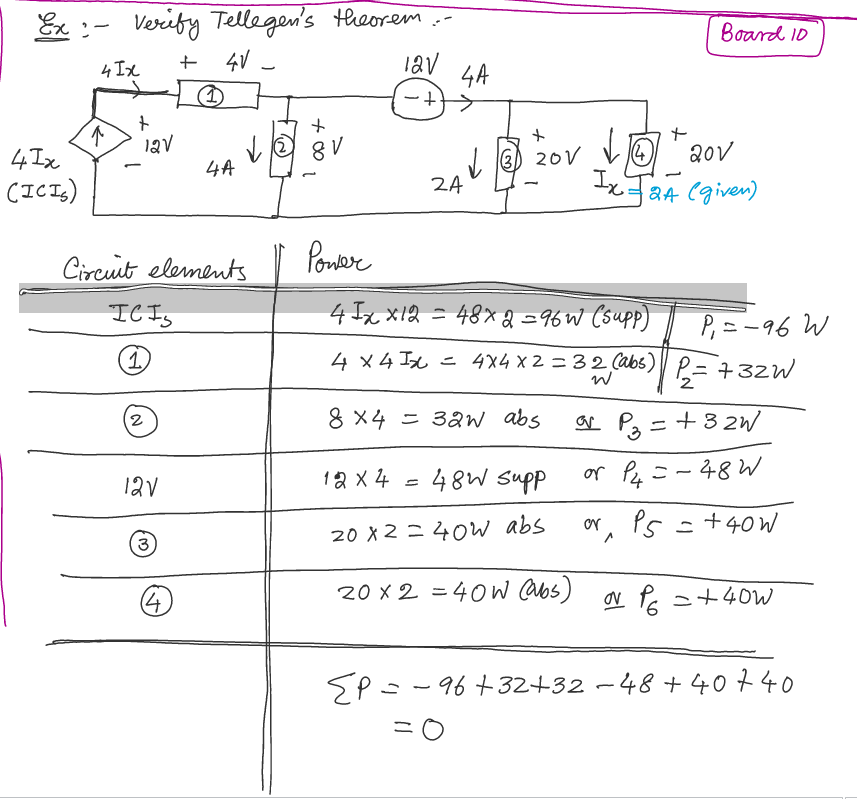 Ex :- Verify Tellegen's theorem :-
Board 10
4Ix + 4V - 12V 4A
1 - +
+ 12V - 2 + 8V - 3 + 20V - 4 + 20V -
4Ix 4A 2A Ix = 2A (given)
(ICIs)
Circuit elements Power
ICIs 4Ix x12 = 48x2 = 96W (supp) P1 = -96 W
1 4 x 4Ix = 4x4x2 = 32 W (abs) P2 = +32W
2 8 x4 = 32W abs or P3 = +32W
12V 12 x 4 = 48W supp or P4 = -48W
3 20 x 2 = 40W abs or, P5 = +40W
4 20 x 2 = 40W (abs) or P6 = +40W
ΣP = -96 +32+32 -48 + 40 + 40
= 0